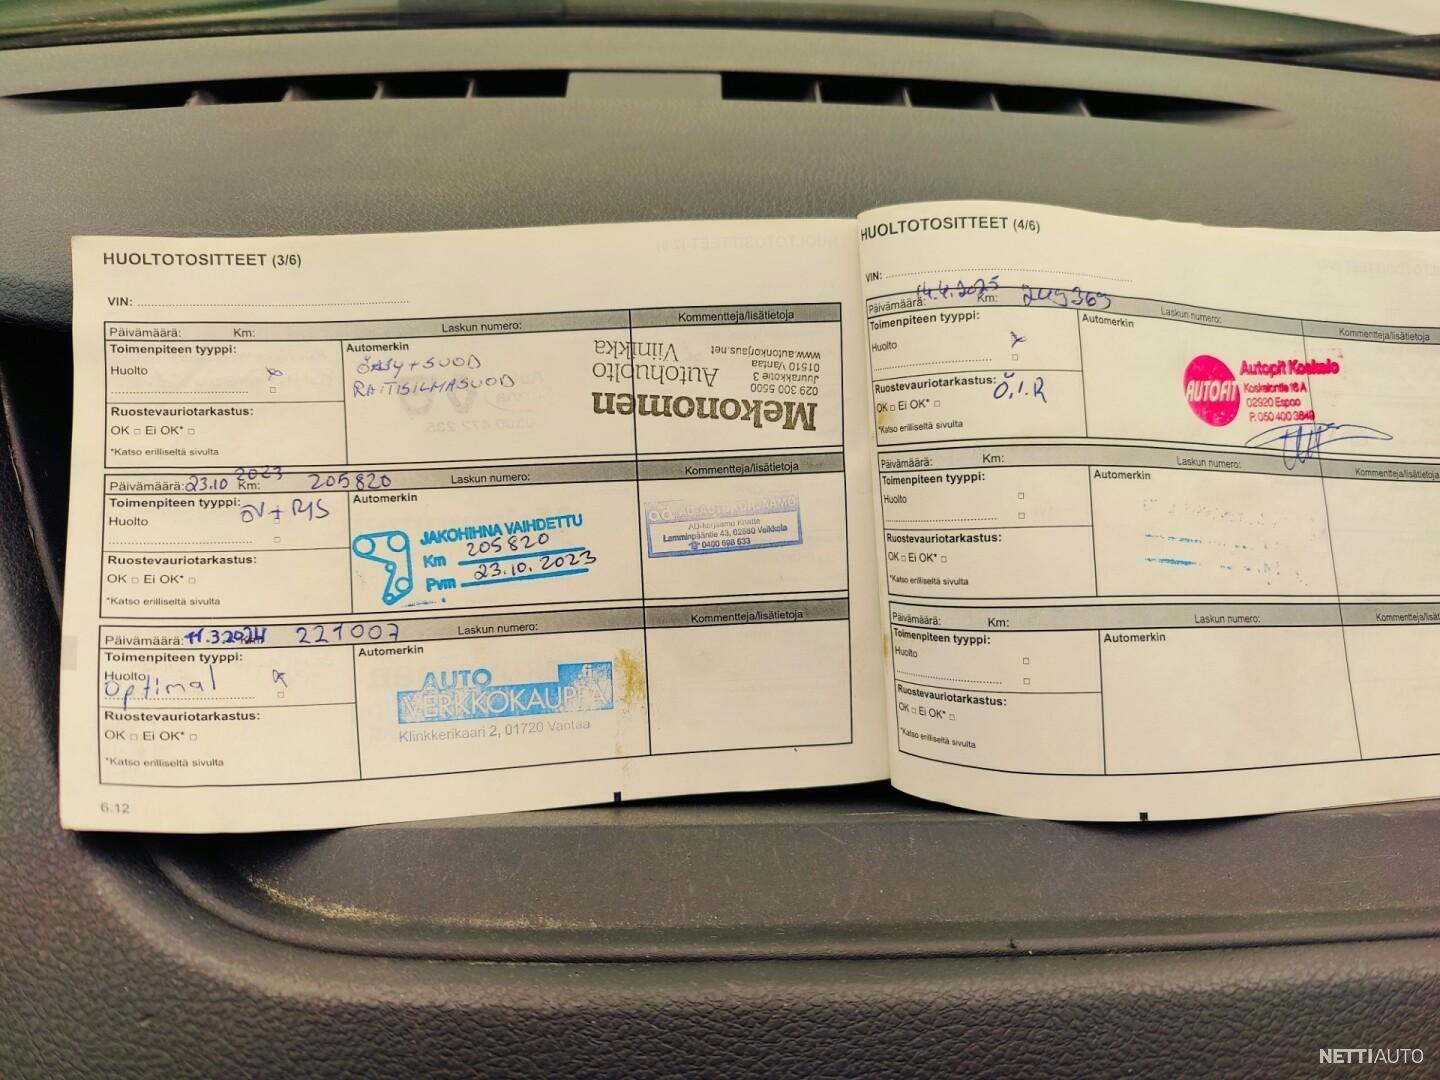 HUOLTOTOSITTEET (3/6)
VIN:
Päivämäärä: Km: Laskun numero: Kommentteja/lisätietoja
Toimenpiteen tyyppi:
Huolto
Automerkin
RAITISILMASUOD
Ruostevauriotarkastus:
OK □ Ei OK* □
*Katso erilliseltä sivulta
Mekonomen
Autohuolto
Viinikka
029 300 5500
Juurakkotie 3
01510 Vantaa
www.autonkorjaus.net
Päivämäärä: 23.10 2023 Km: 205820 Laskun numero: Kommentteja/lisätietoja
Toimenpiteen tyyppi:
Huolto
Automerkin
JAKOHIHNA VAIHDETTU
Km 205820
Pvm 23.10.2023
AD-korjaamo Knatte
Lamminpääntie 43, 02880 Veikkola
☎ 0400 698 633
Ruostevauriotarkastus:
OK □ Ei OK* □
*Katso erilliseltä sivulta
Päivämäärä: 11.3.2024 221007 Laskun numero: Kommentteja/lisätietoja
Toimenpiteen tyyppi:
Huolto
Optimal
Automerkin
AUTO
VERKKOKAUPPA
Klinkkerikaari 2, 01720 Vantaa
Ruostevauriotarkastus:
OK □ Ei OK* □
*Katso erilliseltä sivulta
6.12
HUOLTOTOSITTEET (4/6)
VIN:
Päivämäärä: 14.4.2025 Km: 249369 Laskun numero: Kommentteja/lisätietoja
Toimenpiteen tyyppi:
Huolto
Automerkin
Ö.I.R
Autopit Koskelo
Koskelontie 16 A
02920 Espoo
Ruostevauriotarkastus:
OK □ Ei OK* □
*Katso erilliseltä sivulta
Päivämäärä: Km: Laskun numero:
Toimenpiteen tyyppi:
Huolto
Automerkin
Ruostevauriotarkastus:
OK □ Ei OK* □
*Katso erilliseltä sivulta
Päivämäärä: Km: Laskun numero:
Toimenpiteen tyyppi:
Huolto
Automerkin
Ruostevauriotarkastus:
OK □ Ei OK* □
*Katso erilliseltä sivulta
NETTIAUTO